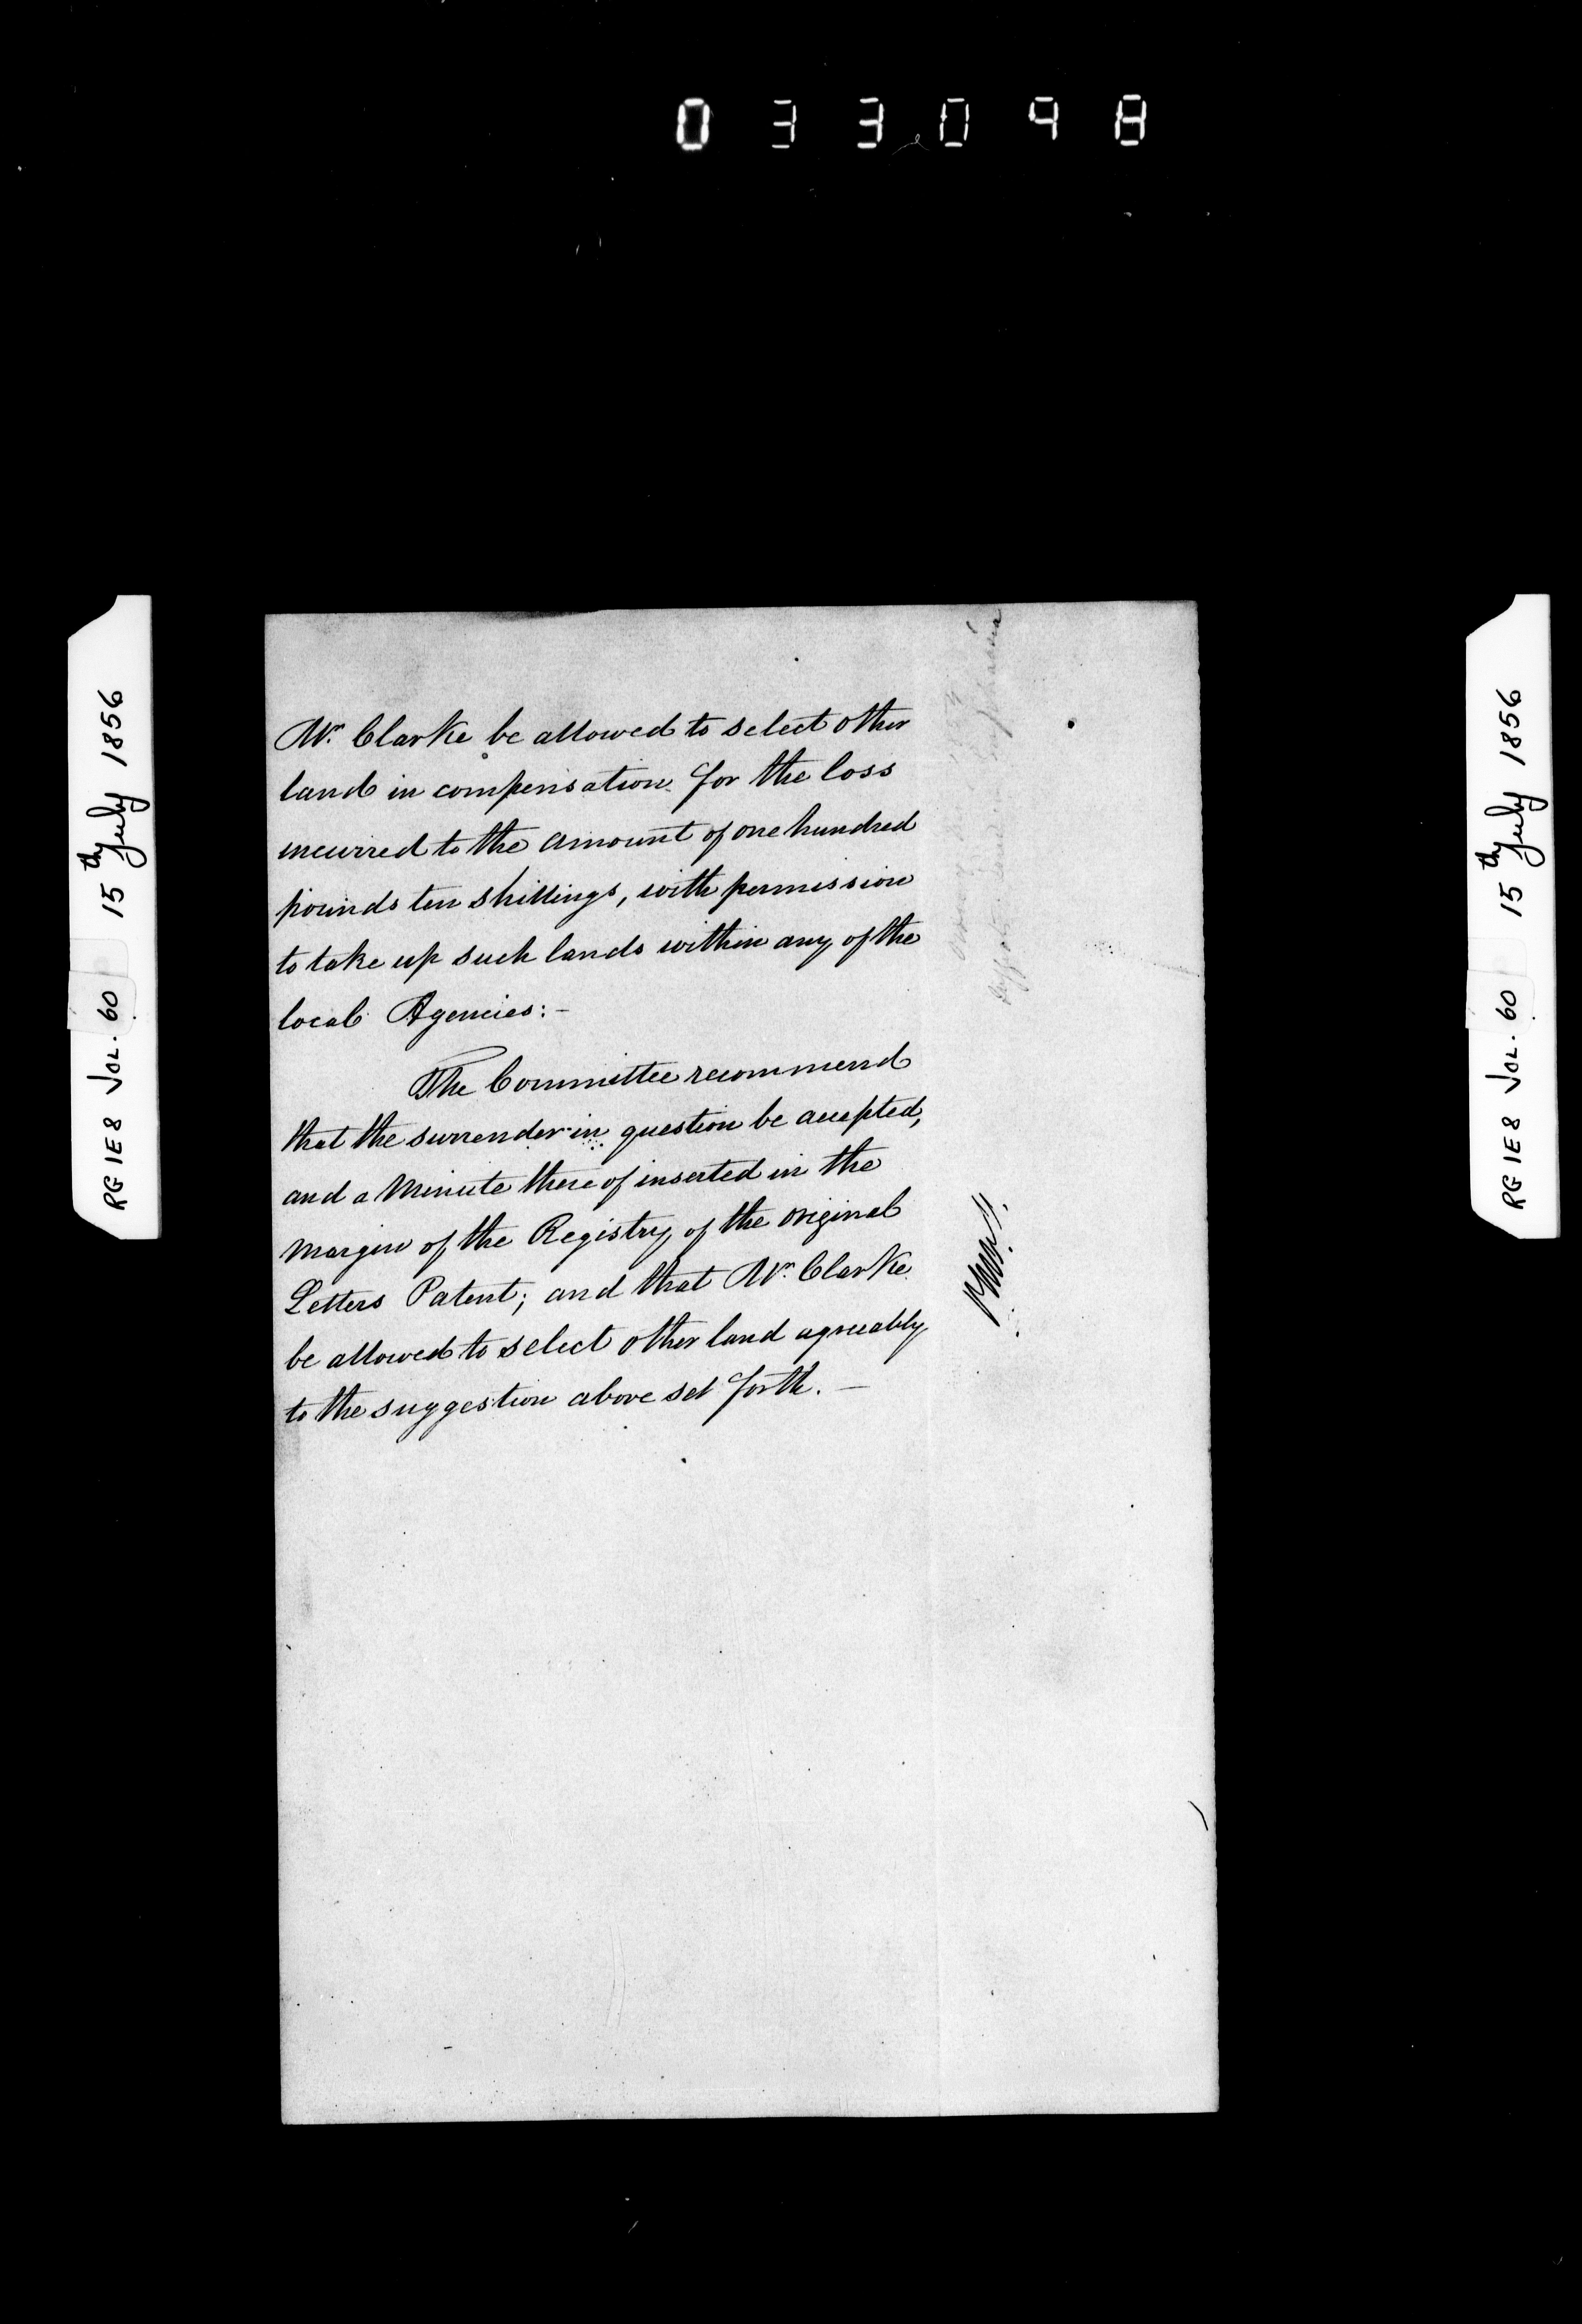 033098
RG 1E8 VOL. 60 15th July 1856
Mr. Clarke be allowed to select other
land in compensation for the loss
incurred to the amount of one hundred
pounds ten shillings, with permission
to take up such lands within any of the
local Agencies:-
The Committee recommend
that the surrender in question be accepted,
and a Minute thereof inserted in the
margin of the Registry of the original
Letters Patent; and that Mr. Clarke
be allowed to select other land agreeably
to the suggestion above set forth. -
RG 1E8 VOL. 60 15th July 1856